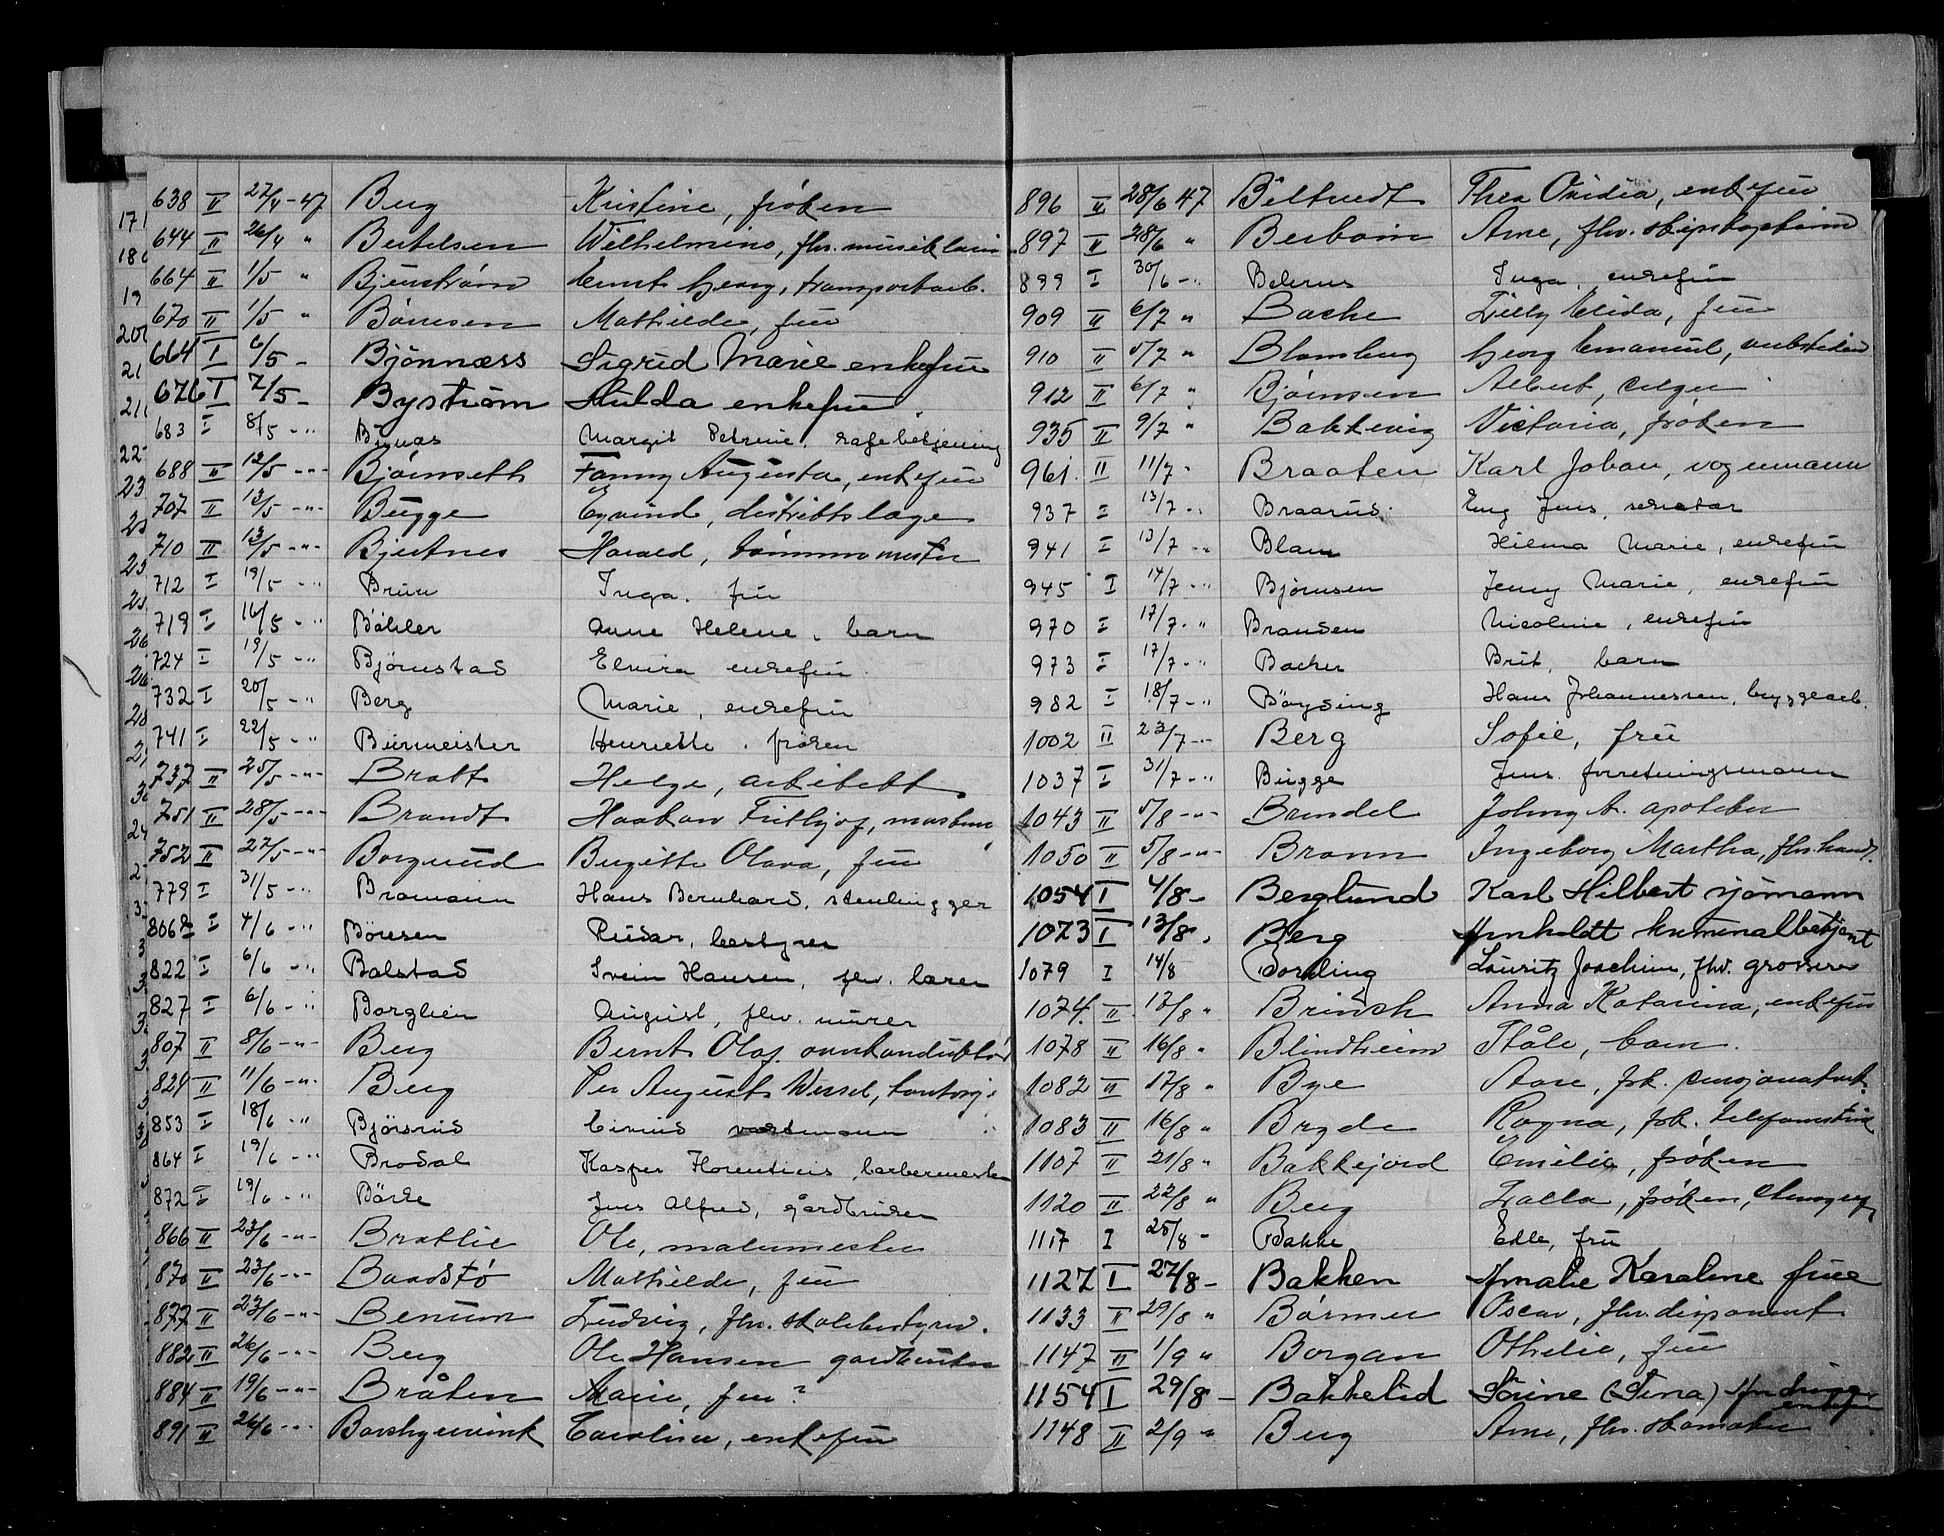 638 II 27/4-47 Berg Kristine, frøken
644 II 26/4 " Bertelsen Wilhelmine, fhv. musiklærer
664 II 1/5 " Bjerstrøm Ernst Georg, transportarb.
670 II 1/5 " Børresen Mathilde, fru
664 I 6/5 - Bjönnæss Sigrid Marie enkefru
676 I 7/5 - Byström Hulda enkefru
683 I 8/5 - " Margit Petrine, kafebetjening
688 II 12/5 - " - Bjørnseth Fanny Augusta, enkefru
707 II 13/5 - " - Bugge Eyvind, distriktslæge
710 II 13/5 - " - Bjertnes Harald, tømmermester
712 I 19/5 - " Bruu Inga, fru
719 I 16/5 - " Bøhler Anne Helene, barn
724 I 19/5 - " Bjørnstad Elvira enkefru
732 I 20/5 - " Berg Marie, enkefru
741 I 22/5 - " Burmeister Henriette, frøken
737 II 25/5 - " - Bratt Helge, arkitekt
751 II 28/5 - " - Brandt Haakon Frithjof,
752 II 27/5 - " - Borgerud Birgitte Olava, fru
779 I 31/5 - " Bramann Hans Bernhard, stenlægger
806 I 4/6 - " Børresen Reidar, bestyrer
822 I 6/6 - " Balstad Svein Hansen, fhv. lærer
827 I 6/6 - " Borglien August, fhv. murer
807 II 8/6 - " - Berg Bernt Olaf, overkonduktør
824 II 11/6 - " - Berg Per August Wessel,
853 I 18/6 - " Bjørsrud Einius vaktmann
864 I 19/6 - " Brodal Kasper Florentius, barbermester
872 I 19/6 - " Børke Jens Alfred, gårdbruker
866 II 23/6 - " - Bratlie Ole, malermester
870 II 23/6 - " - Baadstø Mathilde, fru
877 II 23/6 - " - Benum Ludvig, fhv. skolebestyrer.
882 II 26/6 - " - Berg Ole Hansen gaardbruker
884 II 19/6 - " - Bråten Marie, fru?
891 II 26/6 - " Borchgrevink Caroline, enkefru
896 II 28/6 47 Biltvedt Thea Ovidia, enkefru
897 II 28/6 " Berbom Arne, fhv. skipskaptein
899 I 30/6 - " Inga, enkefru
909 II 6/7 " Bache Lilly Elida, fru
910 II 5/7 " Blomberg Georg Emanuel, arbeider
912 II 6/7 " Bjørnsen Albert, selger
935 II 9/7 " Bakkevig Victoria, frøken
961 II 11/7 - Braaten Karl Johan, vognmann
937 I 13/7 - " Braarud Eng Jens, sekretær
941 I 13/7 - " Blam Hilma Marie, enkefru
945 I 14/7 - " Bjørnsen Jenny Marie, enkefru
970 I 17/7 - " Bransden Nicoline, enkefru
973 I 17/7 - " Bacher Brit, barn
982 I 18/7 - " Böysing Hans Johannessen, bryggearb.
1002 II 23/7 - " - Berg Sofie, fru
1037 I 31/7 - " Bugge Jens, forretningsmann
1043 II 5/8 - " - Brendel Johny A. apoteker
1050 II 5/8 - " - Bramm Ingeborg Martha, fhv. hand.
1054 I 4/8 - Berglund Karl Hilbert sjömann
1073 I 13/8 - Berg Arnholdt kriminalbetjent
1079 I 14/8 Bording Lauritz Joachim, fhv. grosserer
1074 II 12/8 " Brinch Anna Katarina, enkefru
1078 II 16/8 " Blindheim Ståle, barn.
1082 II 17/8 " Bye Aase, frk.
1083 II 16/8 " Bryde Ragna, frk. telefonistinne
1107 II 21/8 " Bakkejord Emilie, frøken
1120 II 22/8 " Berg Lalla, frøken,
1117 I 25/8 - Bakke Edle, fru
1127 I 27/8 - Bakken Amalie Karoline frue
1133 II 29/8 " Børmer Oscar, fhv. disponent
1147 II 1/9 " Borgan Othelie, fru
1154 I 29/8 - Bakkelid Sörine (Sina) enkefru
1148 II 2/9 " Berg Arne, fhv. skomaker